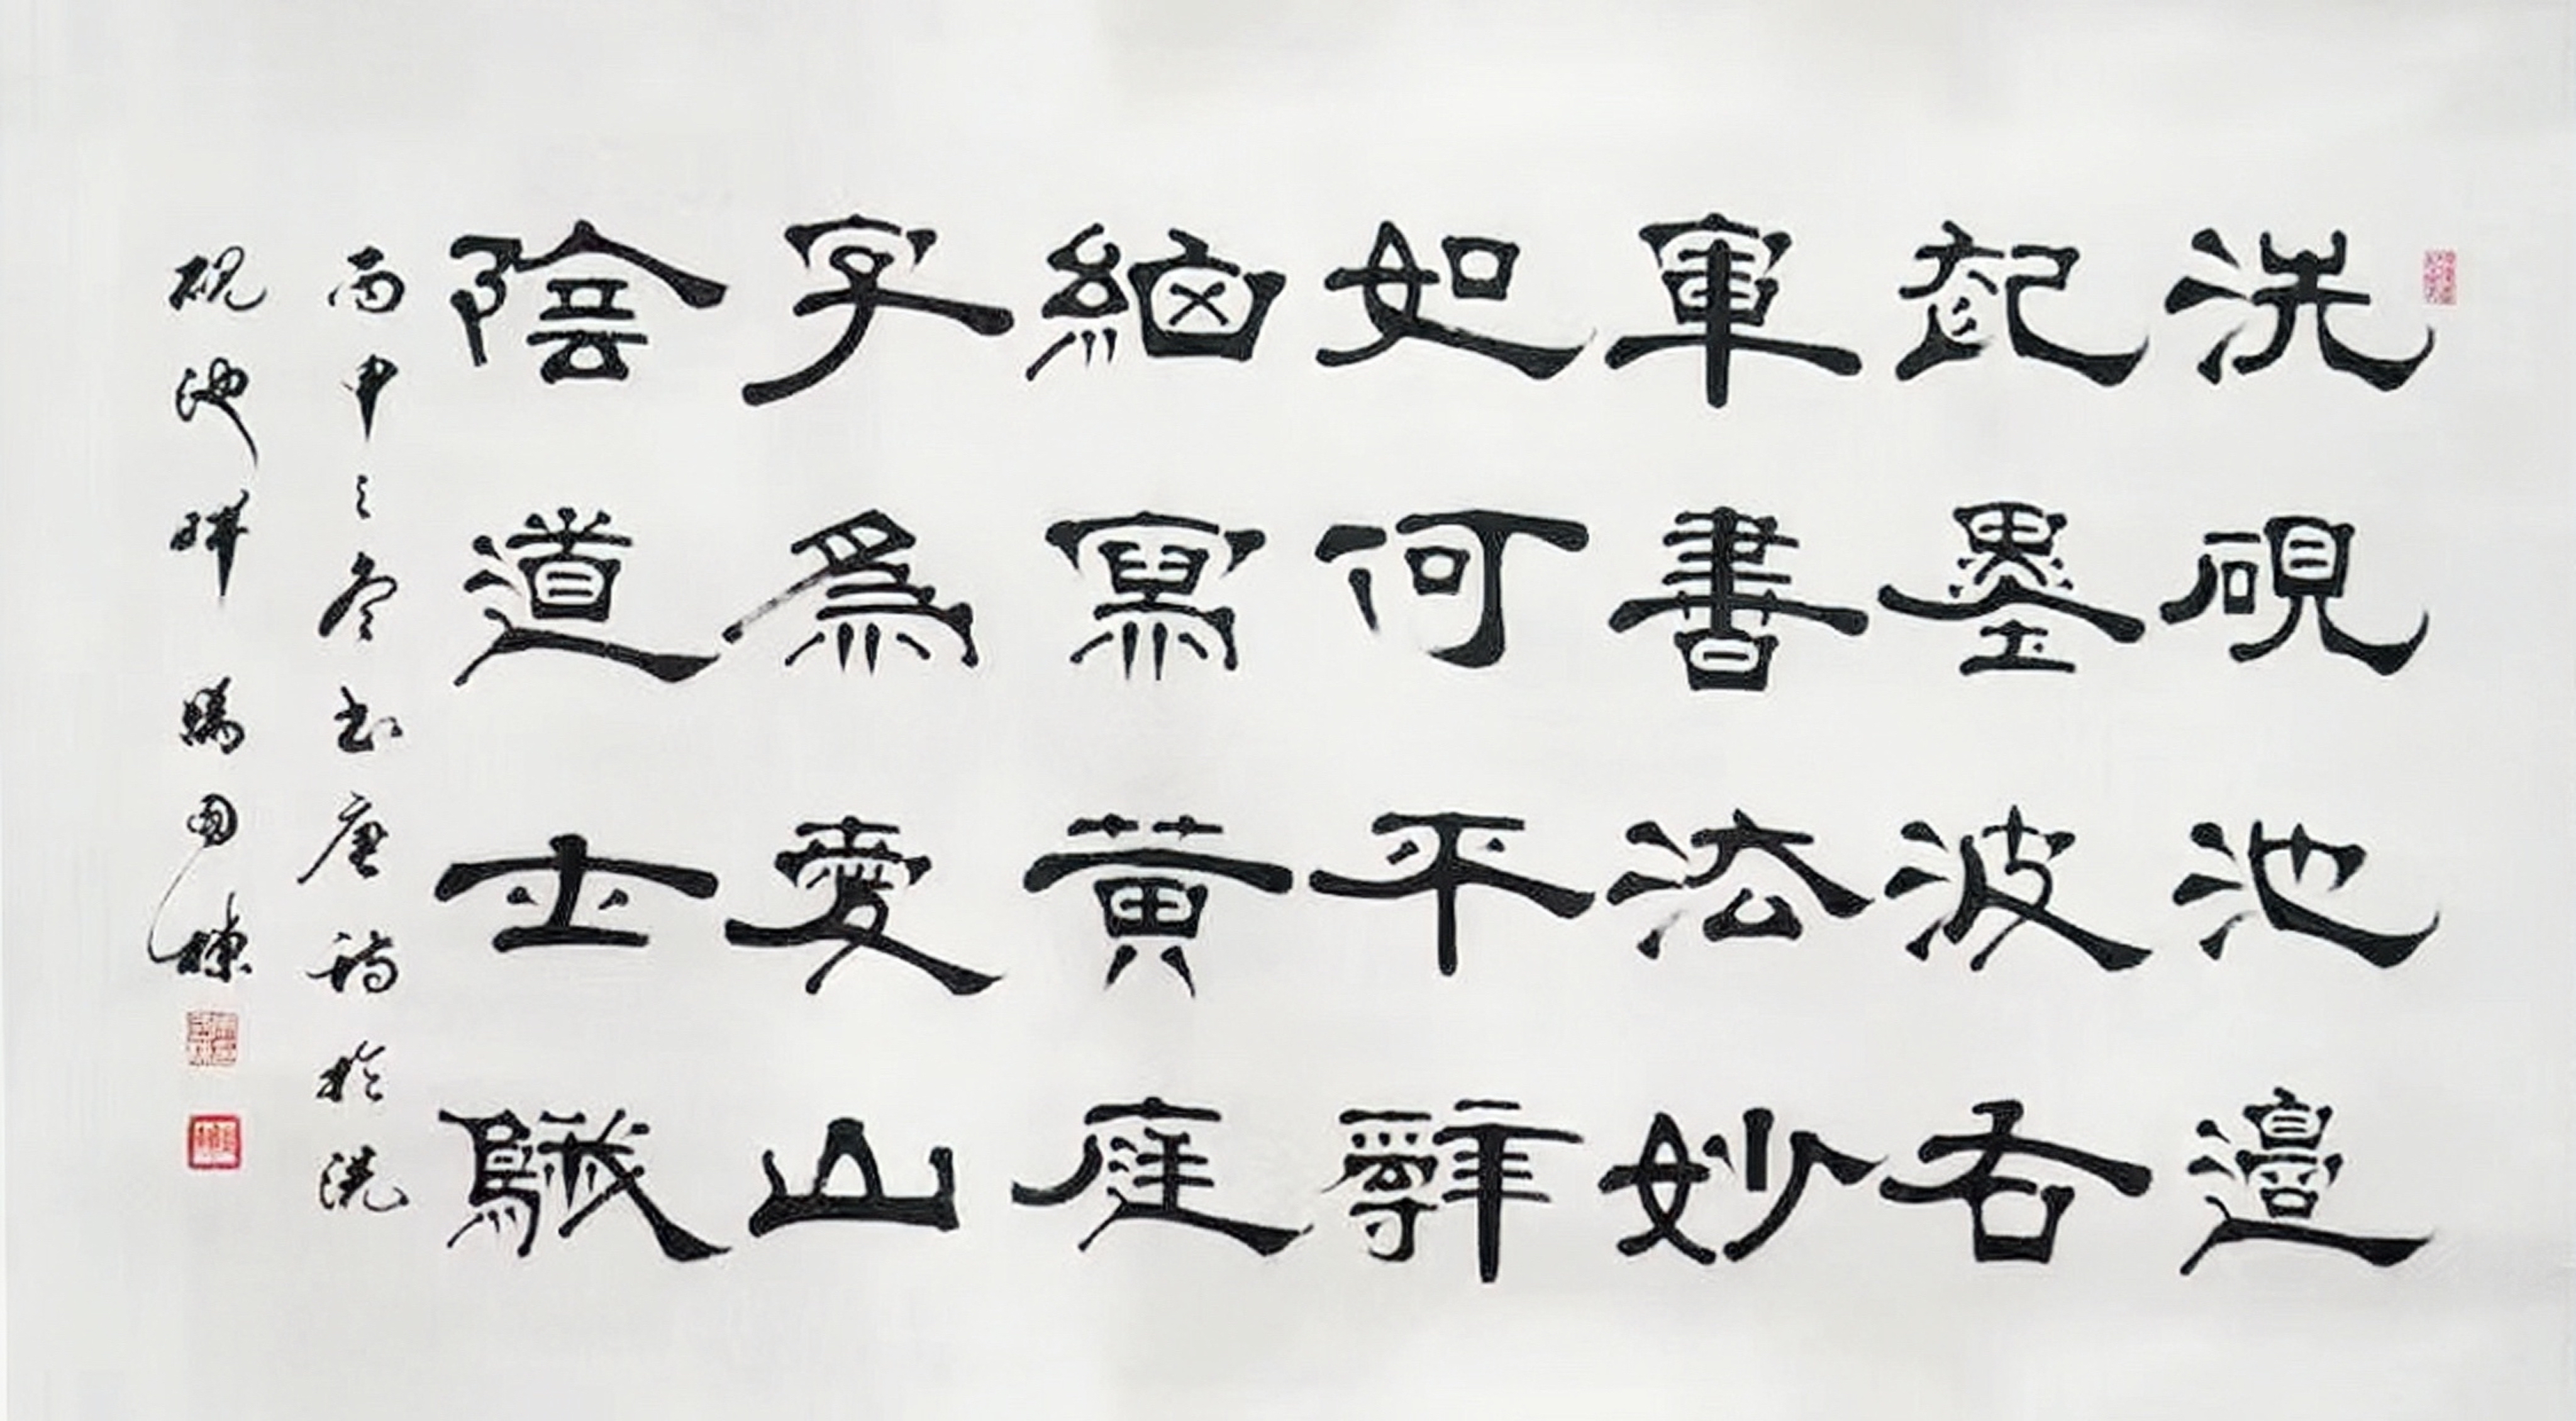 洗硯池邊
起墨波右
軍書法妙
如何平辭
細寫黃庭
字為愛山
陰道士鵝
丙申之冬書唐詩於洗
硯池畔國棟